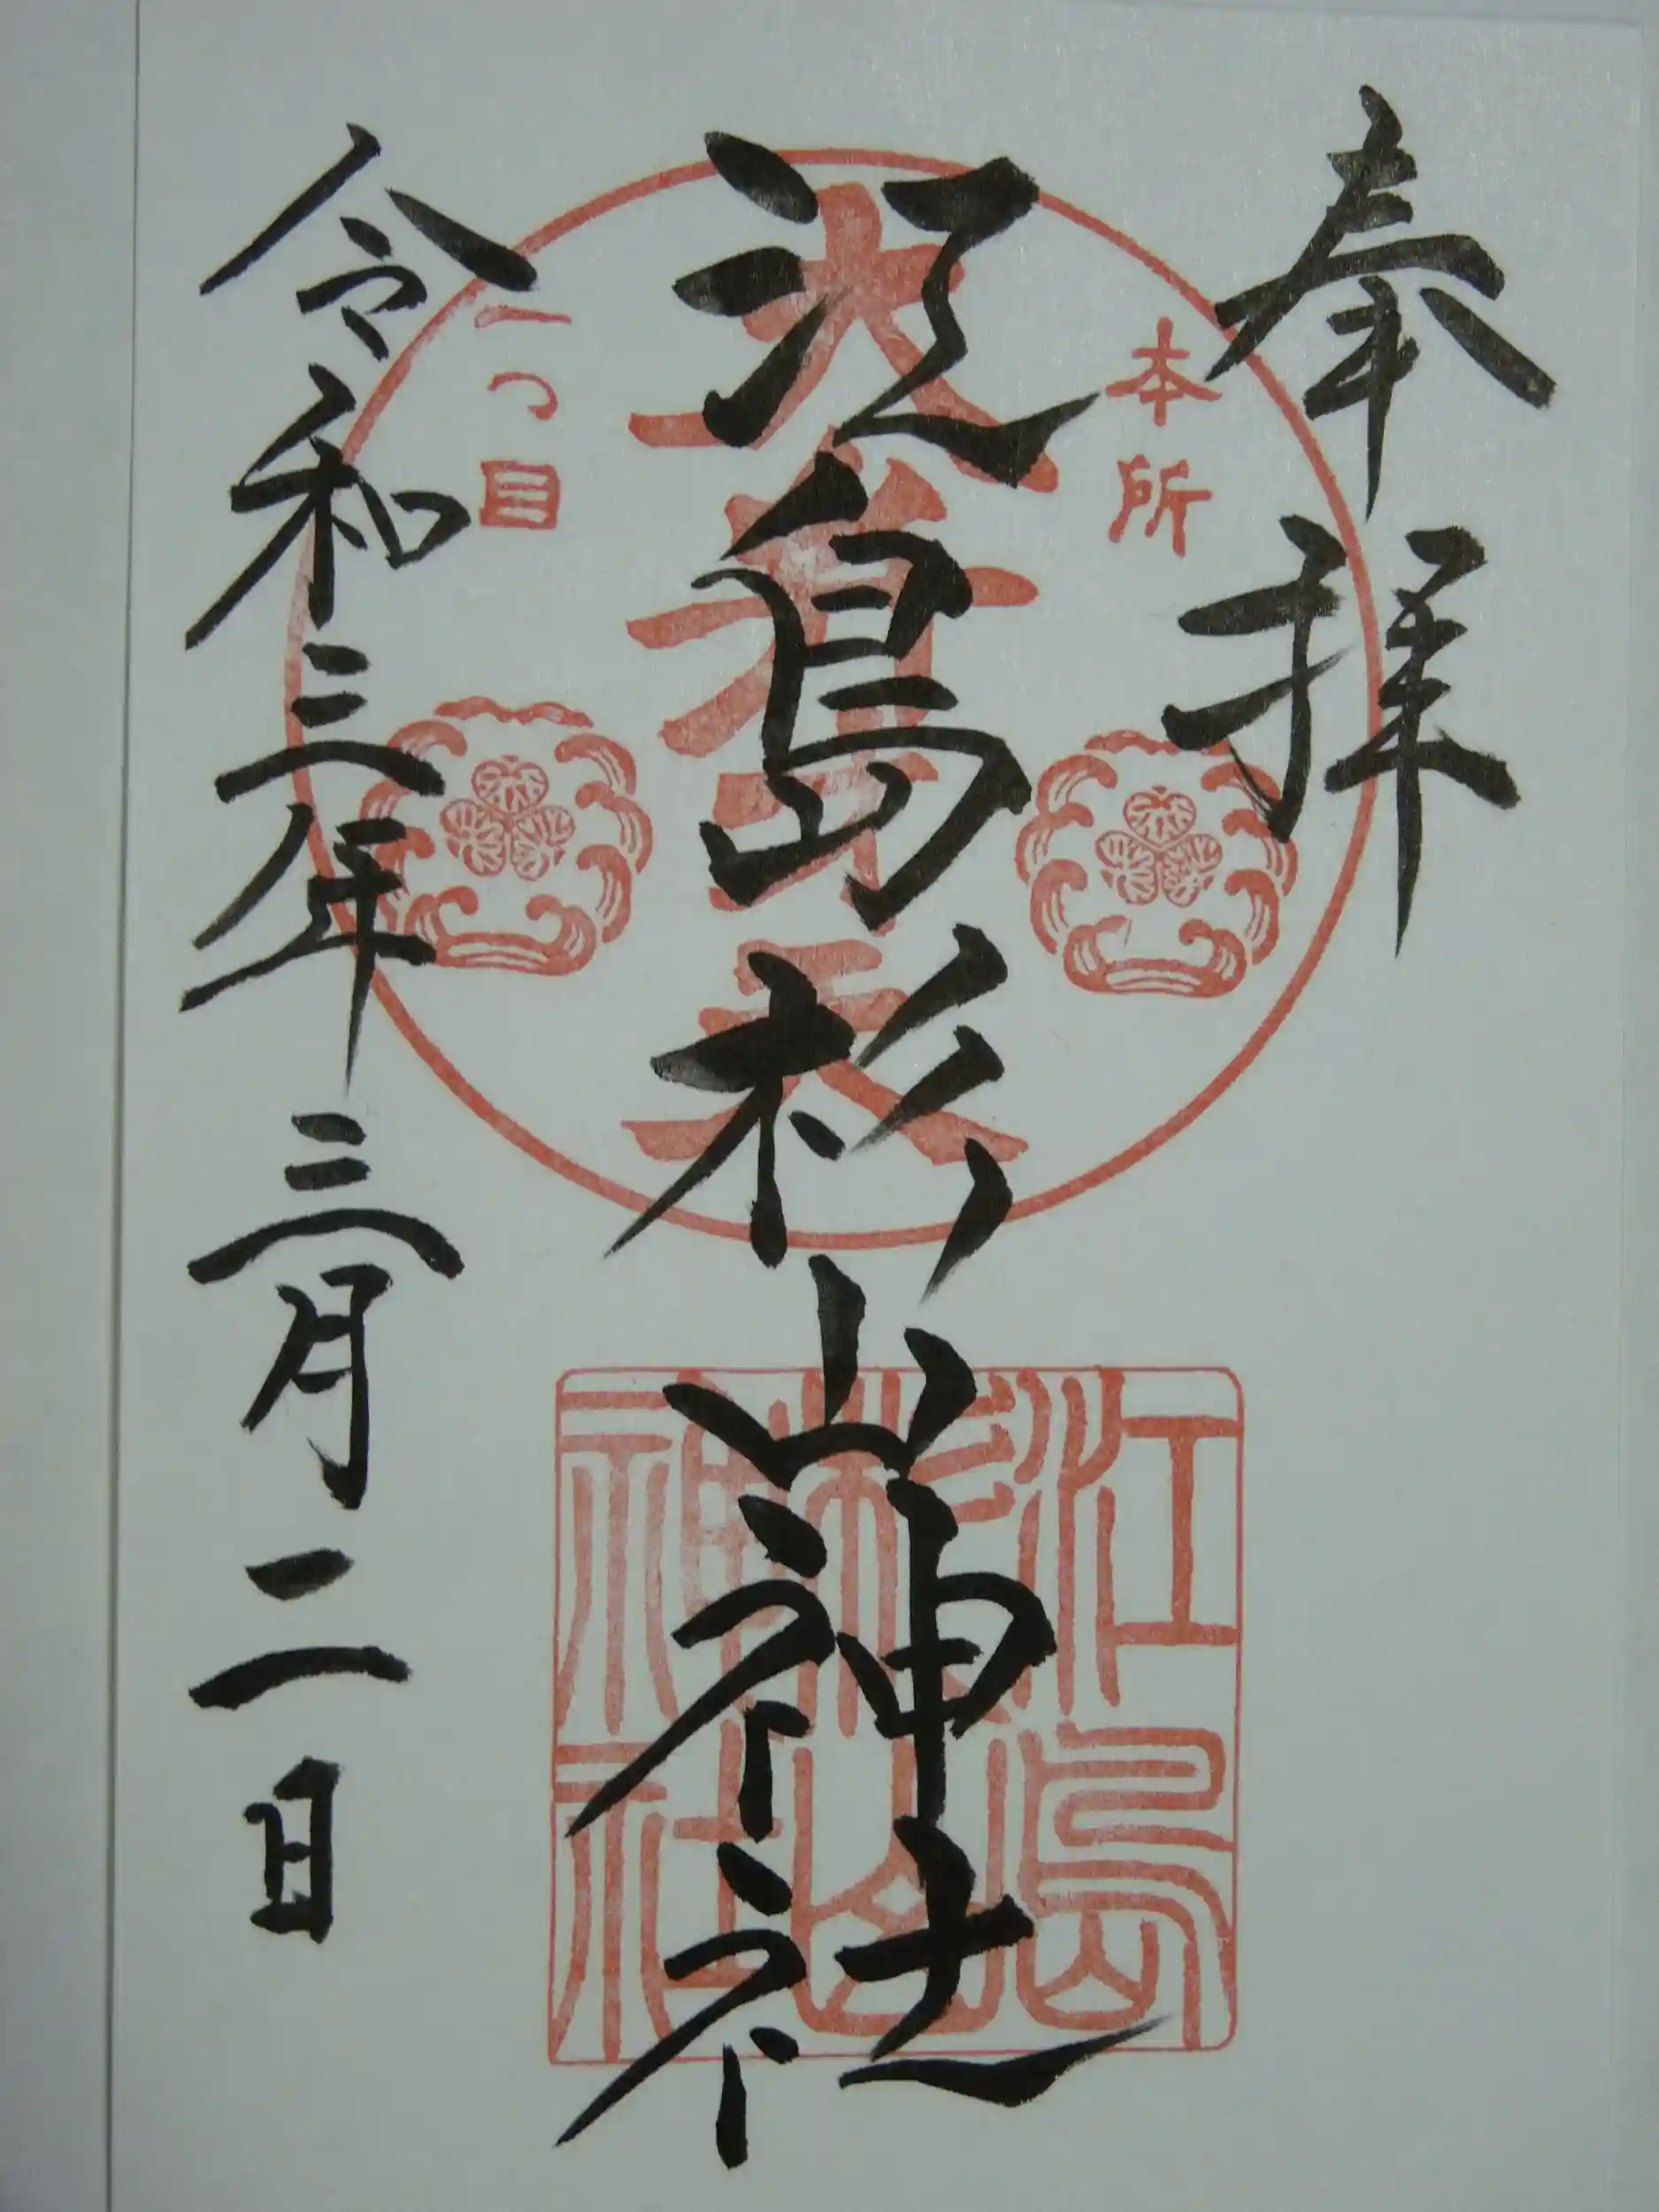 奉拝
本所
江島杉山神社
大弁才天
一つ目
令和三年三月二日
江島
杉山
神社